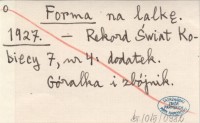 Forma na lalkę.
1927. — Rekord Świat Ko-
biecy 7, nr 4: dodatek.
Góralka i zbójnik.